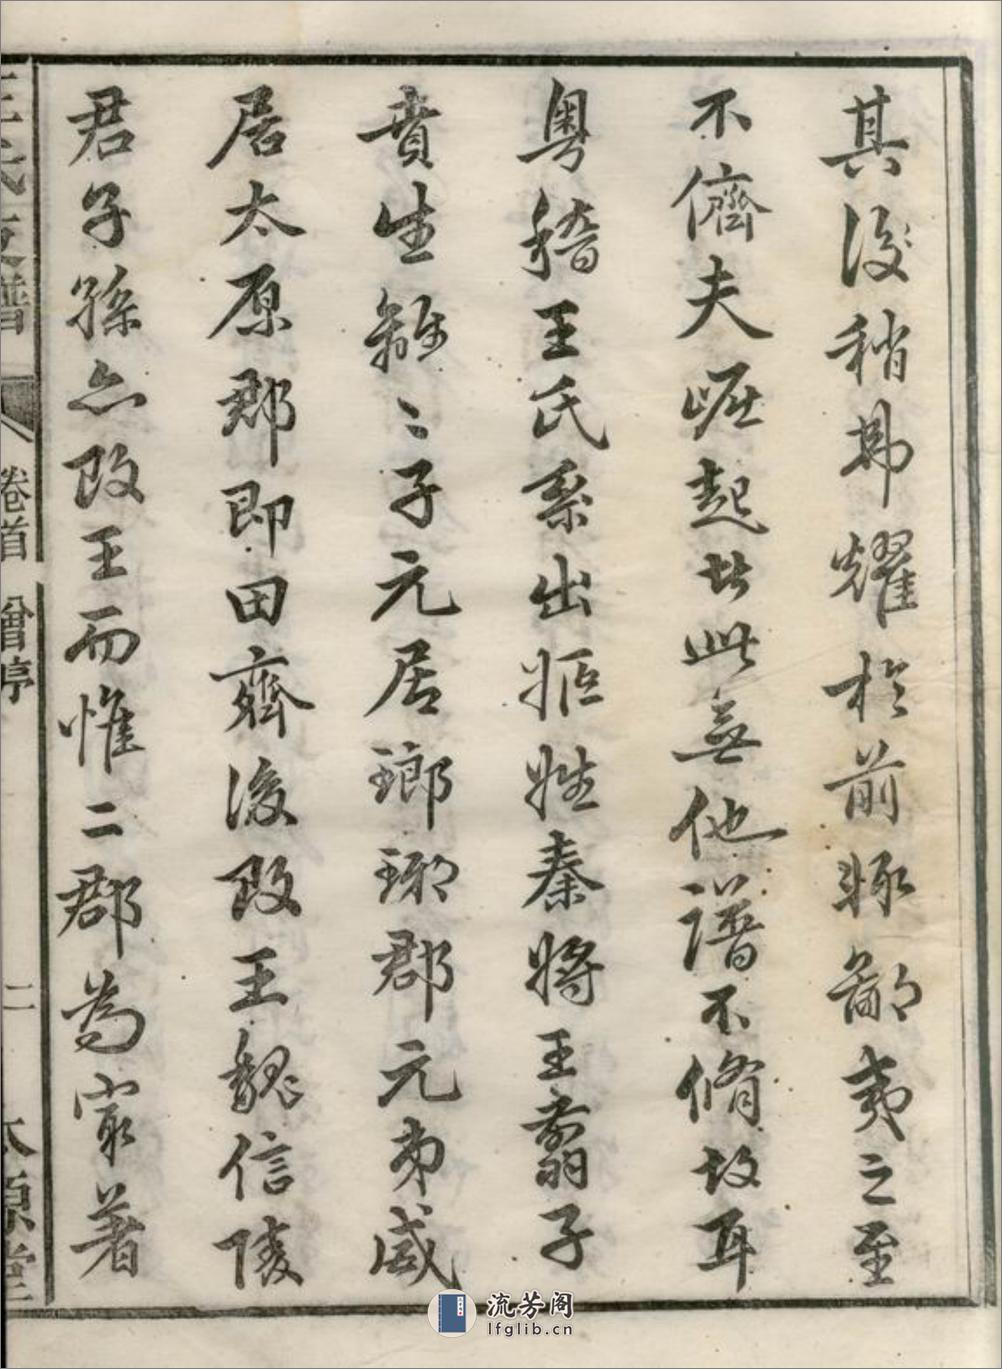 其後稍弗耀於前輒鄙夷之至
不儕夫崛起出此無他譜不脩故耳
粵稽王氏系出姬姓秦將王翦子
賁生離〻子元居瑯琊郡元弟威
居太原郡即田齊後改王魏信陵
君子孫亦改王而惟二郡為最著
王氏支譜
卷首
增序
二
太原堂
流芳阁
lfglib.cn